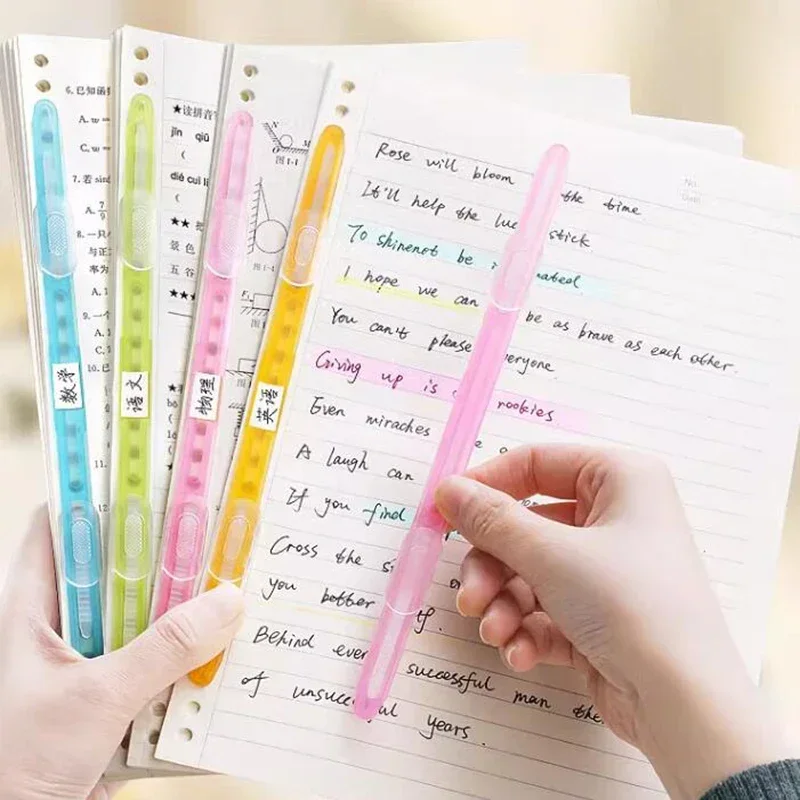 6. 已知函
A. w =
C. w =
7. 若 sin
A. 7/9
8. 一只
与正
率为
A. 1
9. 一个
A.
C.
10. 已
A. 1
11.
12.
数学
★读拼音
jīn qiū
(
dié cuì lǐ
(
★★
景色
五谷
★★★
语文
N
图1-1
图1-4
F₁
物理
英语
No.
Date
Rose will bloom the time
It'll help the luc stick
To shinenot be nated
I hope we can be as brave as each other.
You can't please veryone
Giving up is rookies
Even miraches
A laugh can
If you find
Cross the
you better if.
Behind ever successful man the
of unsuccessful years.